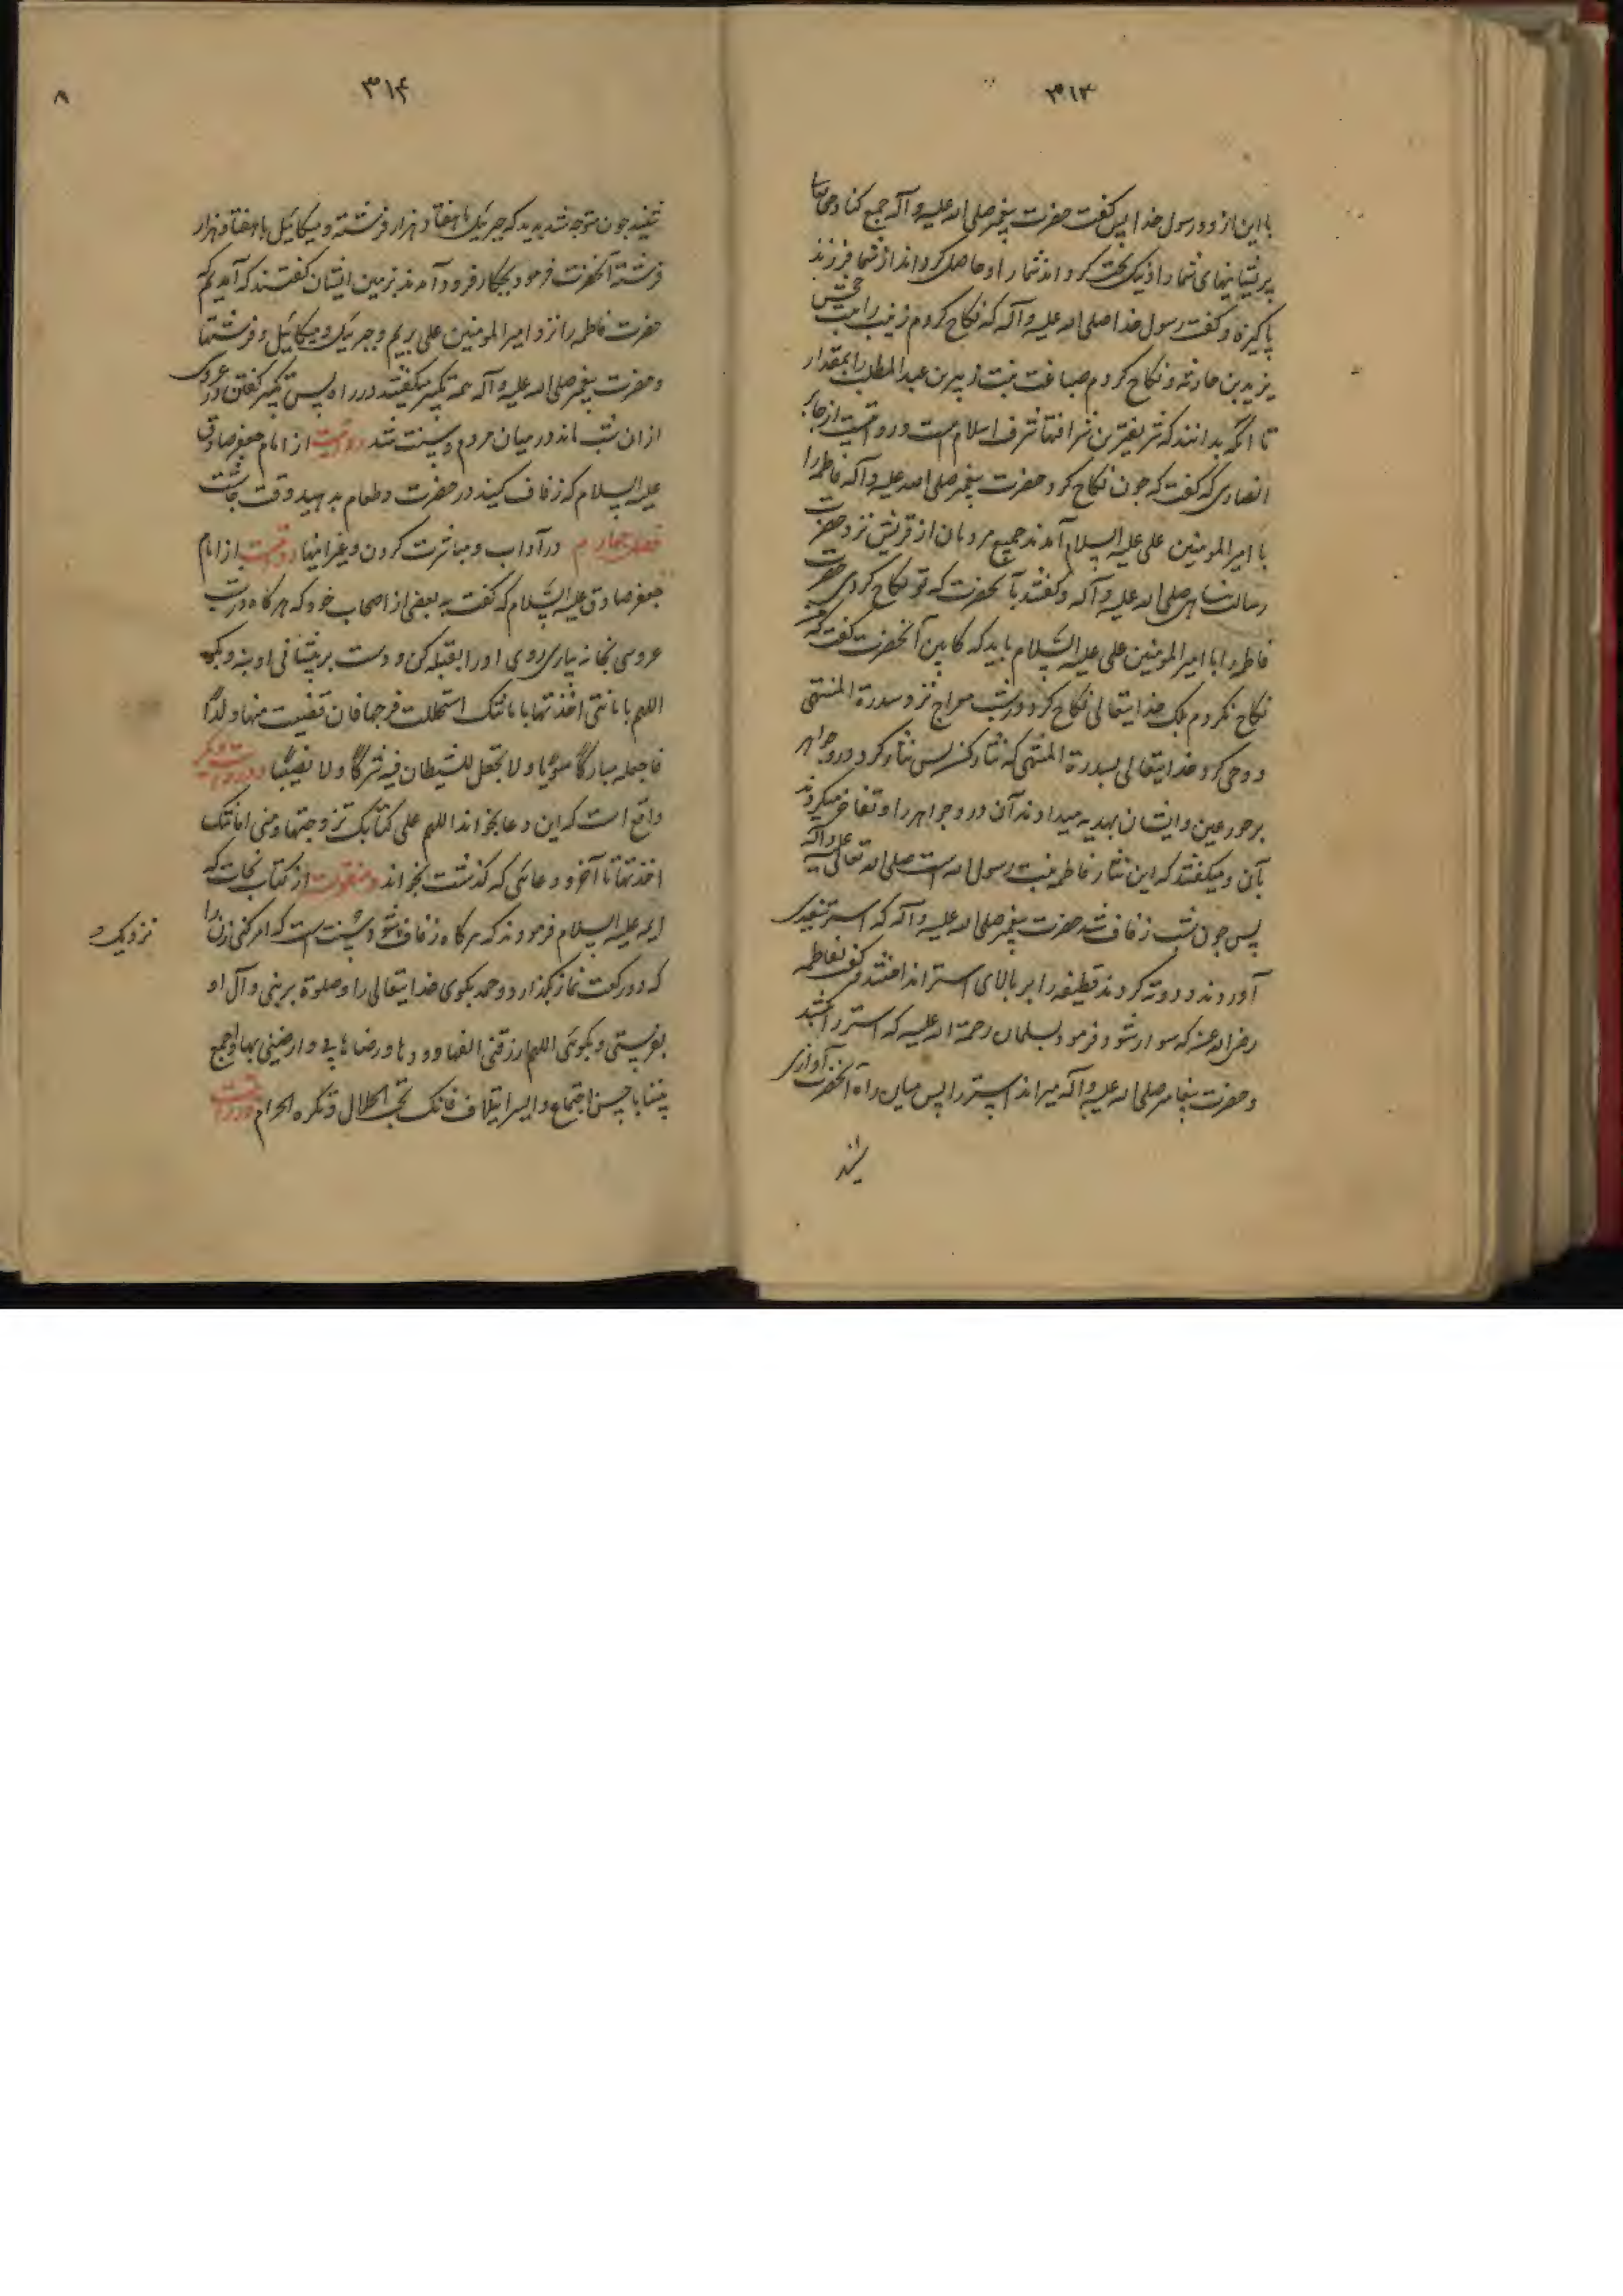 ۳۱۳
با این از دو رسول خدا پس گفت حضرت پیغمبر صلی الله علیه و آله جمع کناد حق تعالی
پریشانیهای شما را و نیک بخت کرداند شما را و حاصل کرداند از شما فرزند
پاکیزه و گفت رسول خدا صلی الله علیه و آله که نکاح کردم زینب را بنت جحش
بزید بن حارثه و نکاح کردم ضباعت بنت زبیر بن عبد المطلب را بمقداد
تا آنکه بدانند که شریفترین شرافتها شرف اسلام است و رواتیست از جابر
انصاری که گفت که چون نکاح کرد حضرت پیغمبر صلی الله علیه و آله فاطمه را
با امیر المومنین علی علیه السلام آمدند جمیع مردمان از قریش نزد حضرت
رسالت پناهی صلی الله علیه و آله و گفتند بآنحضرت که تو نکاح کردی حضرت
فاطمه را با امیر المومنین علی علیه السلام باید که کابین آنحضرت گفت که من
نکاح نکردم بلکه خدایتعالی نکاح کرد در شب معراج نزد سدرة المنتهی
و وحی کرد خدایتعالی بسدرة المنتهی که نثار کن پس نثار کرد در و جواهر
بر حور عین و ایشان بهدیه میدادند آن در و جواهر را و تفاخر میکردند
بآن و میگفتند که این نثار فاطمه بنت رسول الله است صلی الله تعالی علیه و آله
پس چون شب زفاف شد حضرت پیغمبر صلی الله علیه و آله که استر سفیدی
آوردند و دوته کردند قطیفه را بر بالای استر انداختند و گفت بفاطمه
رضی الله عنها که سوار شو و فرمود بسلمان رحمة الله علیه که استر را بکشد
و حضرت پیغامبر صلی الله علیه و آله میراند استر را پس میان راه آنحضرت آوازی
شنید
۳۱۴
۸
شنید چون متوجه شد بدید که جبرئیل با هفتاد هزار فرشته و میکائیل با هفتاد هزار
فرشته آنحضرت فرمود بچکار فرود آمدند بزمین ایشان گفتند که آمدیم که
حضرت فاطمه را نزد امیر المومنین علی بریم و جبرئیل و میکائیل و فرشتها
و حضرت پیغمبر صلی الله علیه و آله همه تکبیر میگفتند در راه پس تکبیر گفتن در عروسی
از ان شب ماند در میان مردم و سنت شد رواتیست از امام جعفر صادق
علیه السلام که زفاف کنید در حضرت و طعام بدهید وقت چاشت
فصل چهارم در آداب و مباشرت کردن و غیر اینها رواتیست از امام
جعفر صادق علیه السلام که گفت به بعضی از اصحاب خود که هرگاه درت
عروسی بخانه بیاری روی او را بقبله کن و دست بر پیشانی او بنه و بگو
اللهم بامانتی اخذتها بامانتک استحللت فرجها فان قضیت منها ولدًا
فاجعله مبارکًا سویًا و لا تجعل للشیطان فیه شرکًا و لا نصیبًا و در روایت دیگر
واقع است که این دعا بخواند اللهم علی کتابک تزوجتها و منی امانتک
اخذتها تا آخر و دعائی که گذشت بخواند و منقولست از کتاب نجات که
ایمه علیه السلام فرمودند که هرگاه زفاف شود سنت است که امر کنی زن را
که دو رکعت نماز بگذارد و حمد بگوی خدایتعالی را و صلوة بر نبی و آل او
بفرستی و بگوئی اللهم ارزقنی الفها و ودها و رضاها بی و ارضنی بها و اجمع
بیننا باحسن اجتماع و ایسر ایتلاف فانک تحب الحلال و تکره الحرام و رواتیست
نزدیک